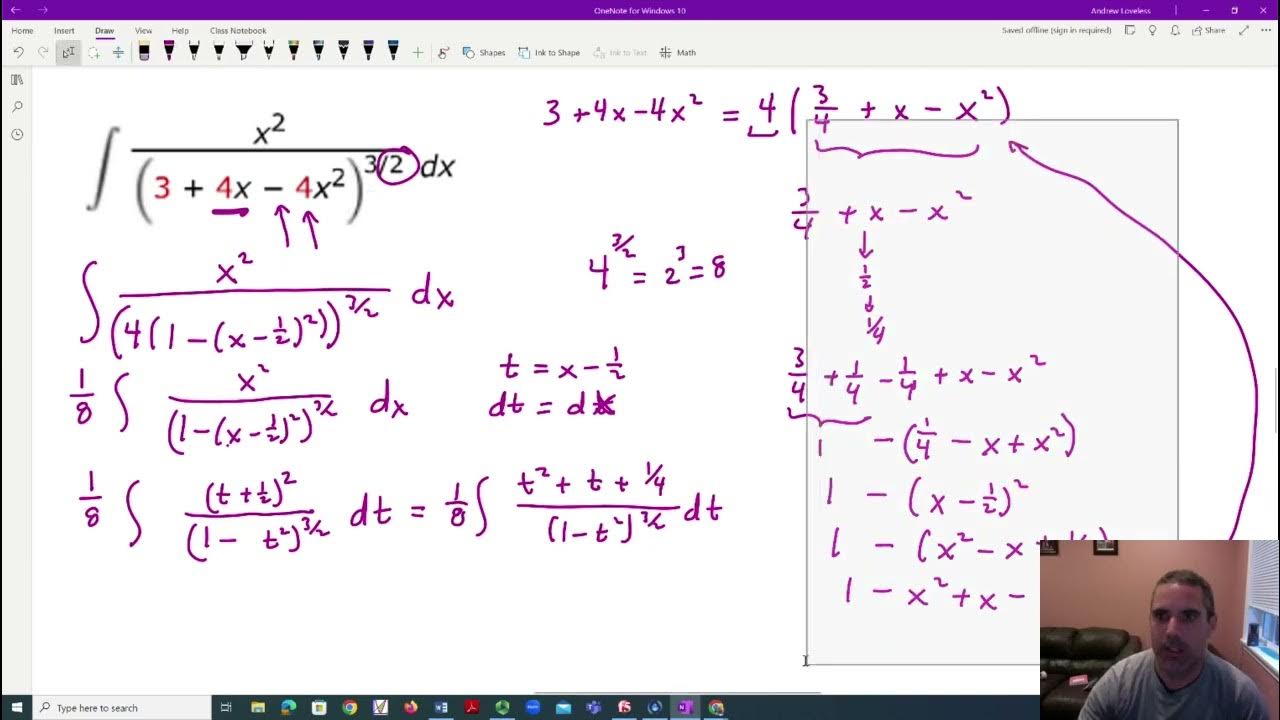 OneNote for Windows 10
Andrew Loveless
Home Insert Draw View Help Class Notebook
Saved offline (sign in required)
Share
Shapes Ink to Shape Ink to Text Math
∫ x² / (3 + 4x − 4x²)^(3/2) dx
3 + 4x − 4x² = 4 ( 3/4 + x − x² )
3/4 + x − x²
↓
1/2
↓
1/4
4^(3/2) = 2³ = 8
∫ x² / (4(1 − (x − 1/2)²))^(3/2) dx
1/8 ∫ x² / (1 − (x − 1/2)²)^(3/2) dx
t = x − 1/2
dt = dx
3/4 + 1/4 − 1/4 + x − x²
1 − (1/4 − x + x²)
1 − (x − 1/2)²
1/8 ∫ (t + 1/2)² / (1 − t²)^(3/2) dt = 1/8 ∫ t² + t + 1/4 / (1 − t²)^(3/2) dt
1 − (x² − x +
1 − x² + x −
Type here to search